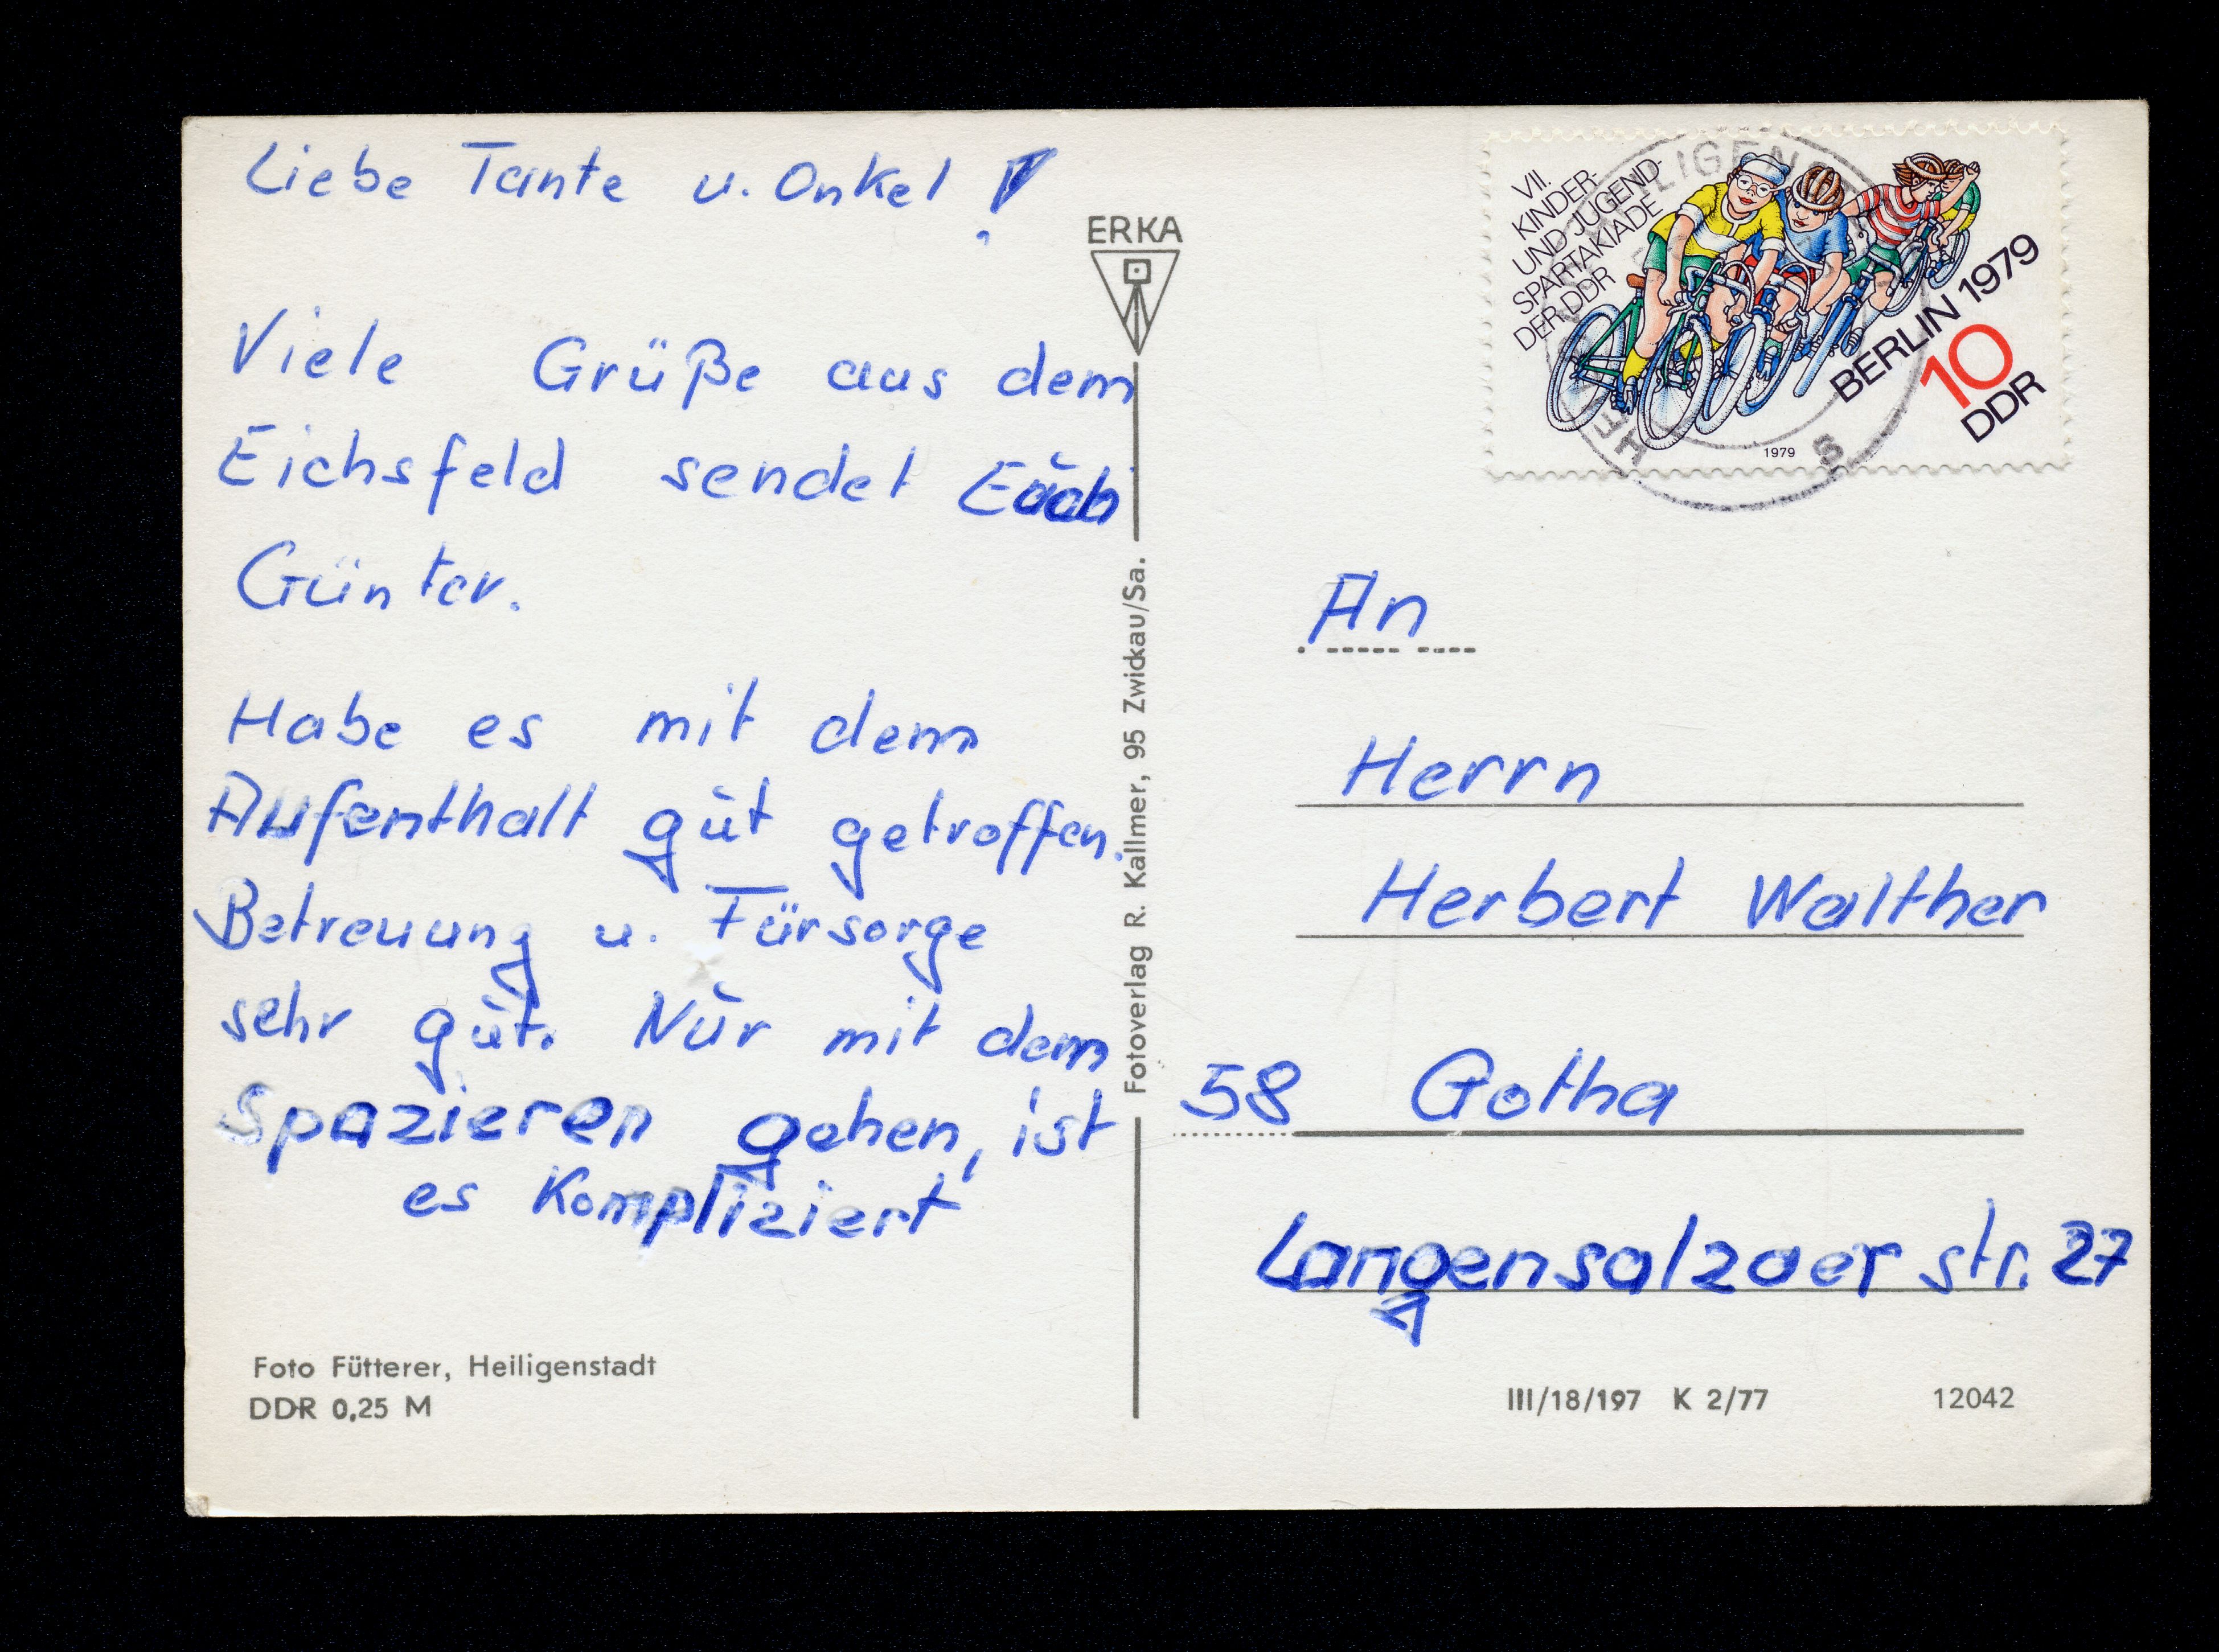 Liebe Tante u. Onkel!
Viele Grüße aus dem
Eichsfeld sendet Euch
Günter.
Habe es mit dem
Aufenthalt gut getroffen.
Betreuung u. Fürsorge
sehr gut. Nur mit dem
Spazieren gehen, ist
es Kompliziert
Foto Fütterer, Heiligenstadt
DDR 0,25 M
ERKA
Fotoverlag R. Kallmer, 95 Zwickau/Sa.
VII.
KINDER-
UND JUGEND-
SPARTAKIADE
DER DDR
BERLIN 1979
10
DDR
1979
An
Herrn
Herbert Walther
58 Gotha
Langensalzaer str. 27
III/18/197 K 2/77 12042